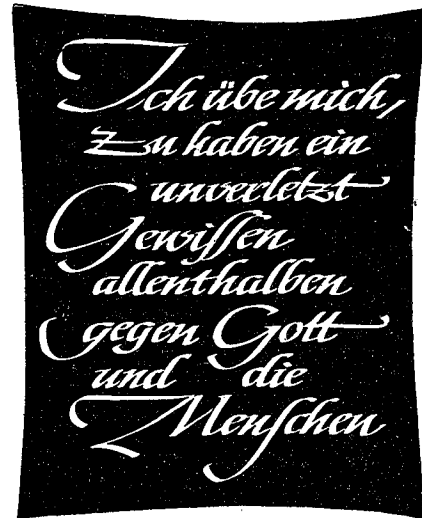 Ich übe mich,
zu haben ein
unverletzt
Gewiſſen
allenthalben
gegen Gott
und die
Menſchen